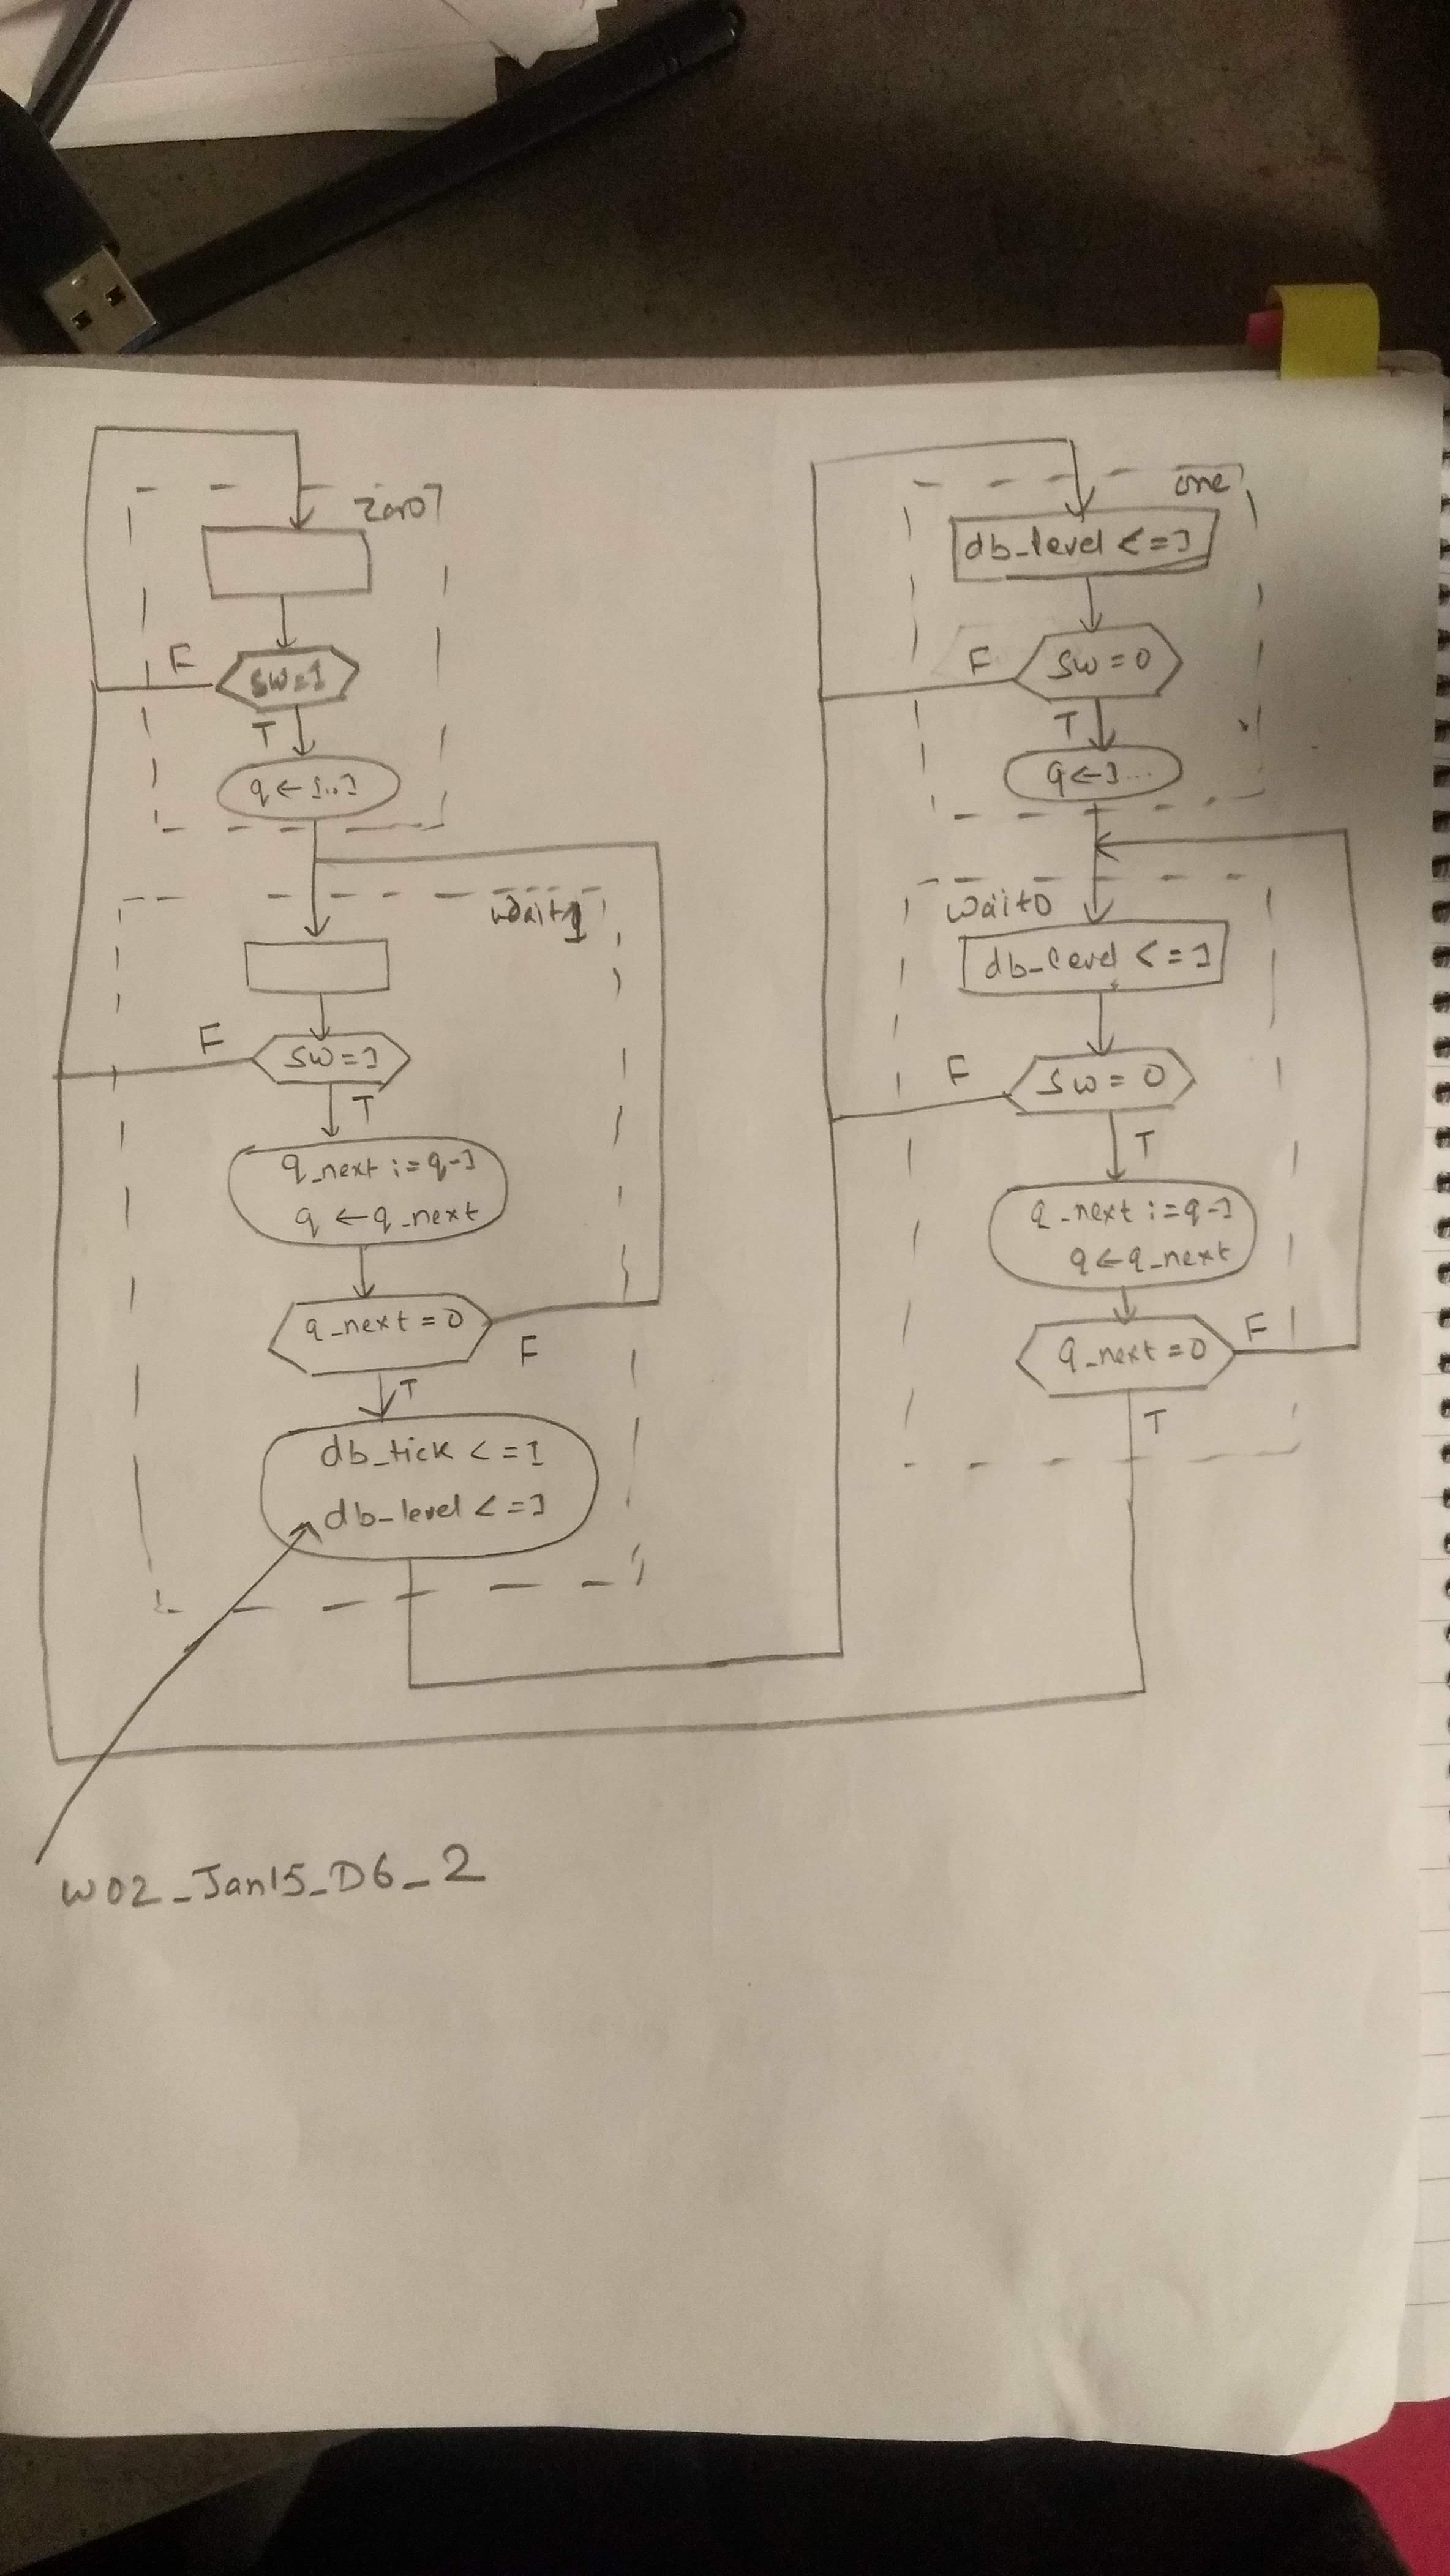 zero
sw=1
F
T
q ← 1..1
wait1
sw=1
F
T
q_next := q-1
q ← q_next
q_next = 0
F
T
db_tick <= 1
db_level <= 1
one
db_level <= 1
sw = 0
F
T
q ← 1...
wait0
db_level <= 1
sw = 0
F
T
q_next := q-1
q ← q_next
q_next = 0
F
T
W02_Jan15_D6_2